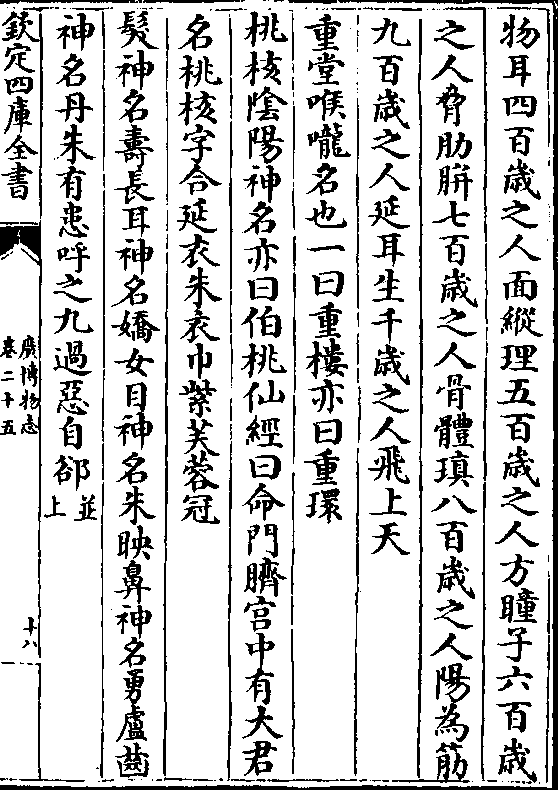 物耳四百歳之人面縱理五百歳之人方瞳子六百歳
之人脅肋胼七百歳之人骨體瑱八百歳之人陽為筋
九百歳之人延耳生千歳之人飛上天
重堂喉嚨名也一曰重樓亦曰重環
桃核陰陽神名亦曰伯桃仙經曰命門臍宫中有大君
名桃核字合延衣朱衣巾紫芙蓉冠
髮神名壽長耳神名嬌女目神名朱映鼻神名勇盧齒
神名丹朱有患呼之九過惡自郤並上
欽定四庫全書
廣博物志
卷二十五
十八